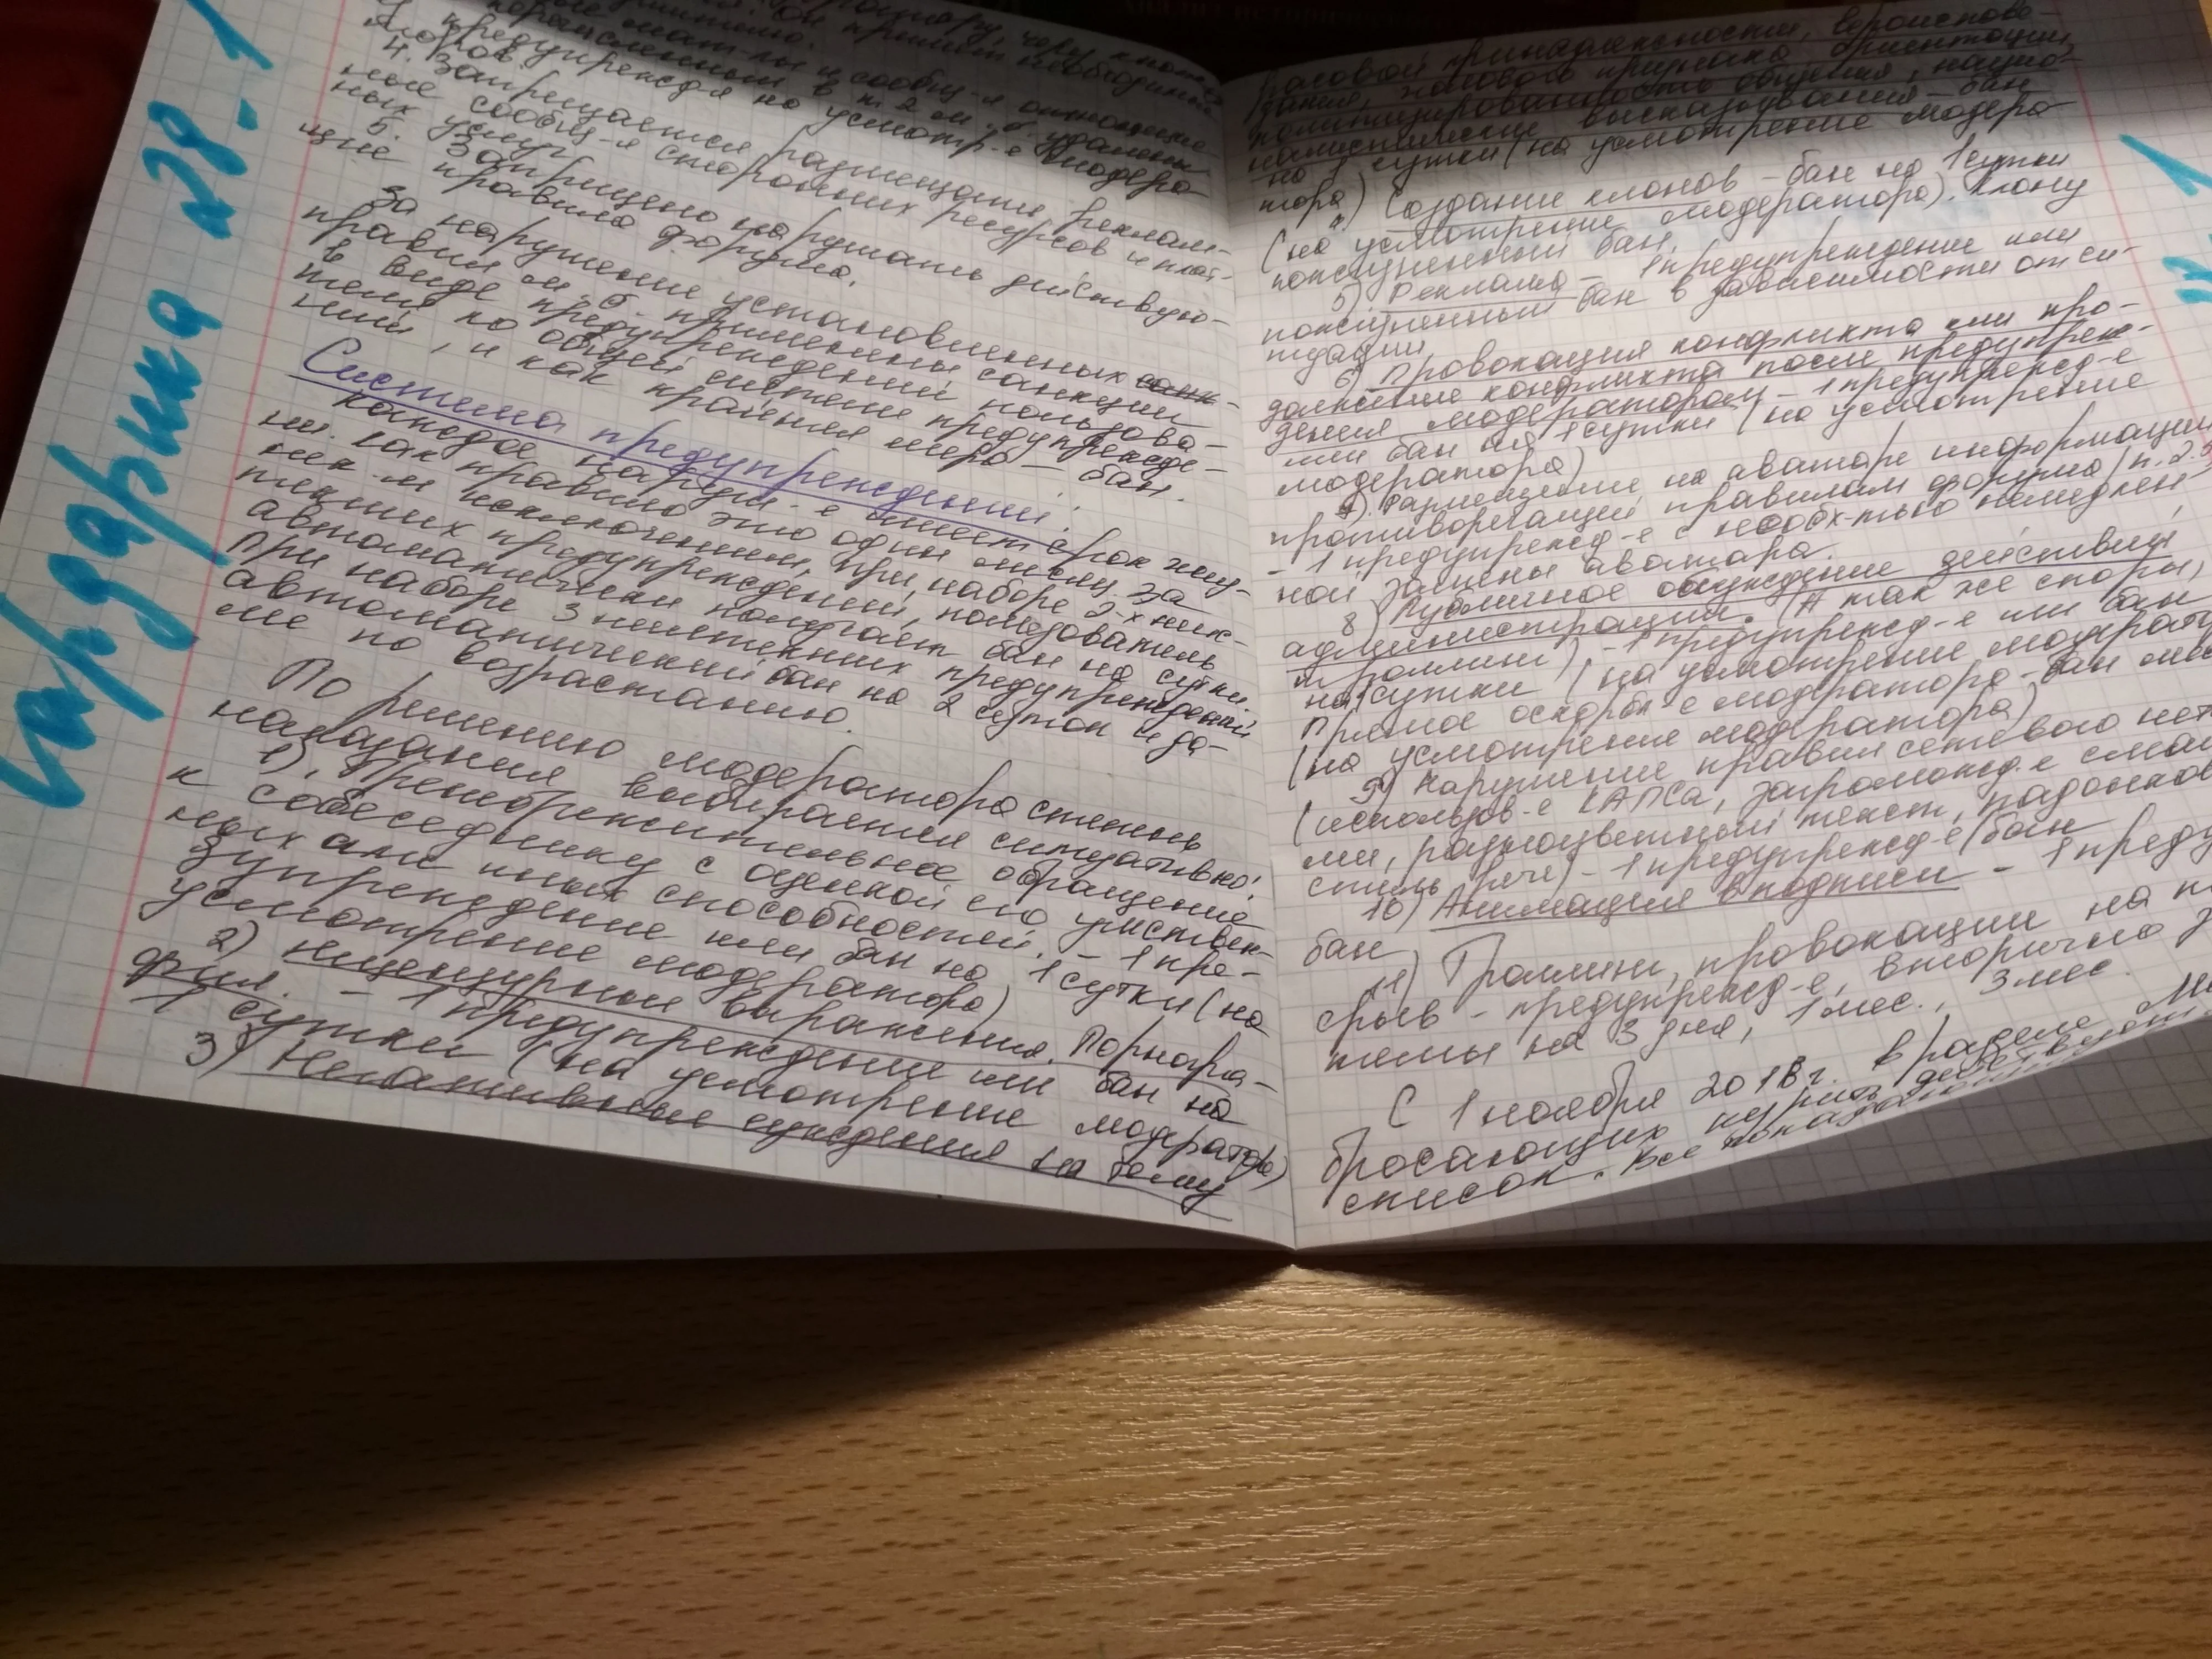 Гардарика №28-1
4. Запрещается размещать реклам-
ные сообщ-я сторонних ресурсов и плат-
ных услуг
5. Запрещено нарушать действую-
щие правила форума.
За нарушение установленных санк-
правил м.б. применены санкции
в виде предупреждений пользова-
телю по общей системе предупрежде-
ний, и как крайняя мера - бан.
Система предупреждений:
каждое наруш-е имеет срок жиз-
ни. Как правило это один месяц. За
нек-м исключением. При наборе 2-х неис-
текших предупреждений, пользователь
автоматически получает бан на сутки.
При наборе 3 неистекших предупреждений
автоматический бан на 2 суток и да-
лее по возрастанию.
По решению модератора степень
наказания выбирается ситуативно:
1). Пренебрежительное обращение
к собеседнику с оценкой его умствен-
ных или иных способностей. - 1 пре-
дупреждение или бан на 1 сутки (на
усмотрение модератора)
2) нецензурные выражения. Порногра-
фия. - 1 предупреждение или бан на
1 сутки (на усмотрение модератора)
3) Негативные суждения на тему
расовой принадлежности, вероиспове-
дания, полового признака, ориентации,
политизированность общения, нацио-
налистические высказывания - бан
на 3 сутки (на усмотрение модера-
тора) Создание клонов - бан на 1 сутки
(на усмотрение модератора). Клону
пожизненный бан.
5) Реклама - 1 предупреждение или
пожизненный бан в зависимости от си-
туации
6) Провокация конфликта или про-
должение конфликта после предупреж-
дения модератором - 1 предупрежд-е
или бан на 1 сутки (на усмотрение
модератора)
7). Размещение на аватаре информации
противоречащей правилам форума (п.2.3
- 1 предупрежд-е с необх-тью немедлен-
ной замены аватара.
8) Публичное обсуждение действий
администрации. (А так же споры,
троллинг), - 1 предупрежд-е или бан
на 1 сутки (на усмотрение
Прямое оскорбл-е модератора - бан
(на усмотрение модератора)
9) Нарушение правил сетевого
(использов-е КАПСа, загроможд-е
ми, разноцветный текст,
стиль речи) - 1 предупрежд-е/бан
10) Анимация в подписи - 1
бан
11) Троллинг, провокации на
срыв - предупрежд-е, вторично
темы на 3 дня, 1 мес., 3 мес.
С 1 ноября 2018г. в разделе
бросающих курить действует
список. Все